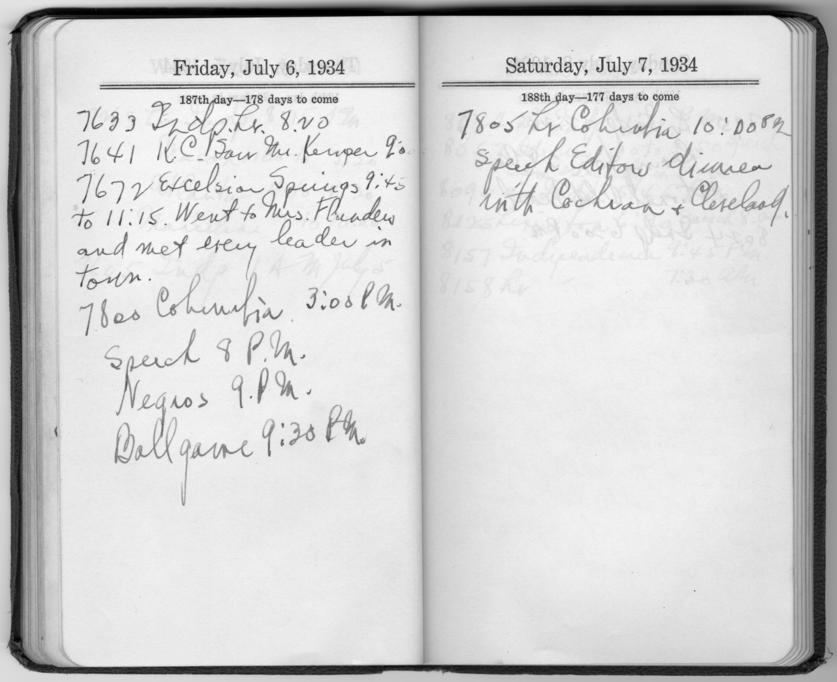 Friday, July 6, 1934
187th day—178 days to come
7633 Indp. Lv. 8:20
7641 K.C. Saw Mr. Kemper 9:00
7672 Excelsior Springs 9:45
to 11:15. Went to Mrs. Flanders
and met every leader in
town.
7800 Columbia 3:00 P.M.
Speech 8 P.M.
Negros 9. P.M.
Ball game 9:30 P.M.
Saturday, July 7, 1934
188th day—177 days to come
7805 Lv Columbia 10:00
Speech Editors dinner
with Cochran + Cleveland.
8157 Independence 9:45 P.M.
8158 Lv 7:30